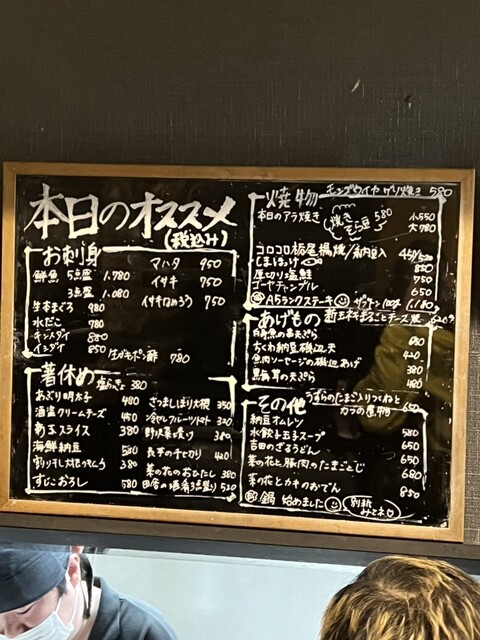 本日のオススメ
(税込み)
お刺身
鮮魚 5点盛 1.780
3点盛 1.080
生本まぐろ 980
水だこ 780
キンメダイ 850
イシダイ 850
マハタ 950
イサキ 750
イサキなめろう 750
生ガキポン酢 780
箸休め
塩らっきょ 380
あぶり明太子 480
酒盗クリームチーズ 450
新玉スライス 380
海鮮納豆 580
釣りオし大根の 380
すじこおろし 580
さつましぼり大根 350
冷やしフルーツトマト 320
野沢菜漬け 380
長芋の千切り 420
菜の花のおひたし 380
田舎の酒肴3点盛り 520
焼物
モンゴウイカゲソ焼き 580
本日のアラ焼き 小550
大980
焼きそら豆 580
コロコロ栃尾揚焼/納豆入 450/520
しまほっけ 850
厚切り塩鮭 750
ゴーヤチャンプル 650
A5ランクステーキ 100g 1.180
あげもの
新玉ねぎまるごとチーズ
白身魚の天ぷら 680
ちくわ納豆磯辺天 420
魚肉ソーセージの磯辺あげ 380
黒舞茸の天ぷら 480
その他
うずらのたまご入りつくねと
カブの煮物 650
納豆オムレツ 580
水餃子玉子スープ 650
吉田のざるうどん 650
菜の花と豚肉のたまごとじ 680
菜の花とカキのおでん 850
鍋 始めました
別紙みてネ